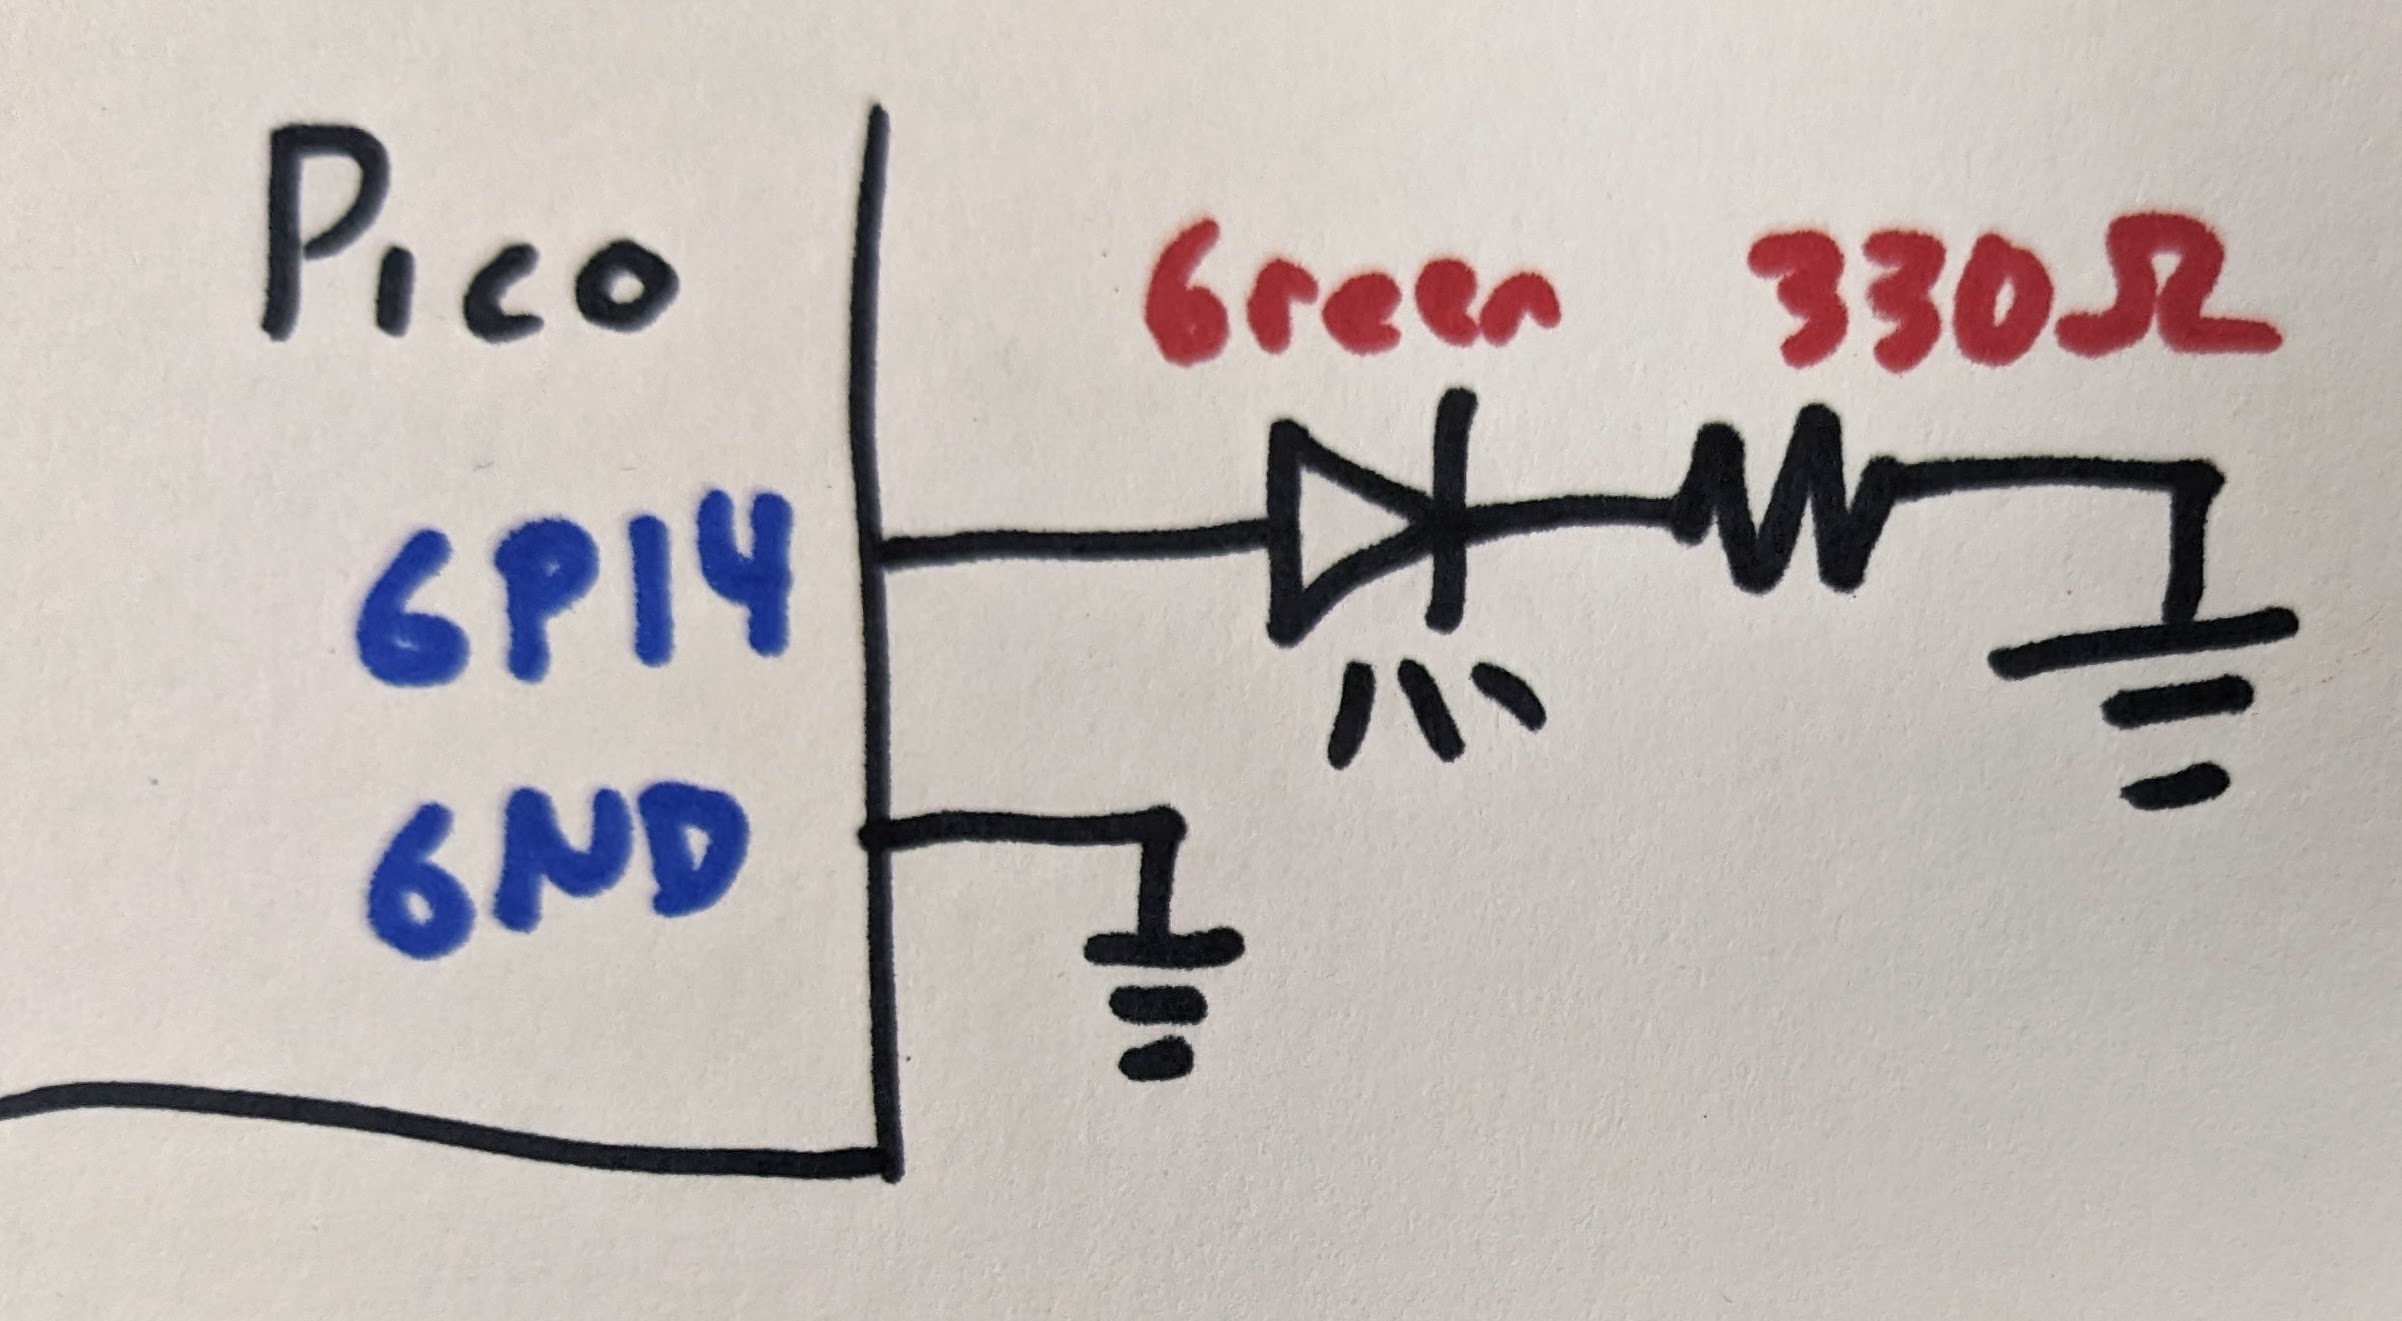 Pico
Green 330Ω
GP14
GND